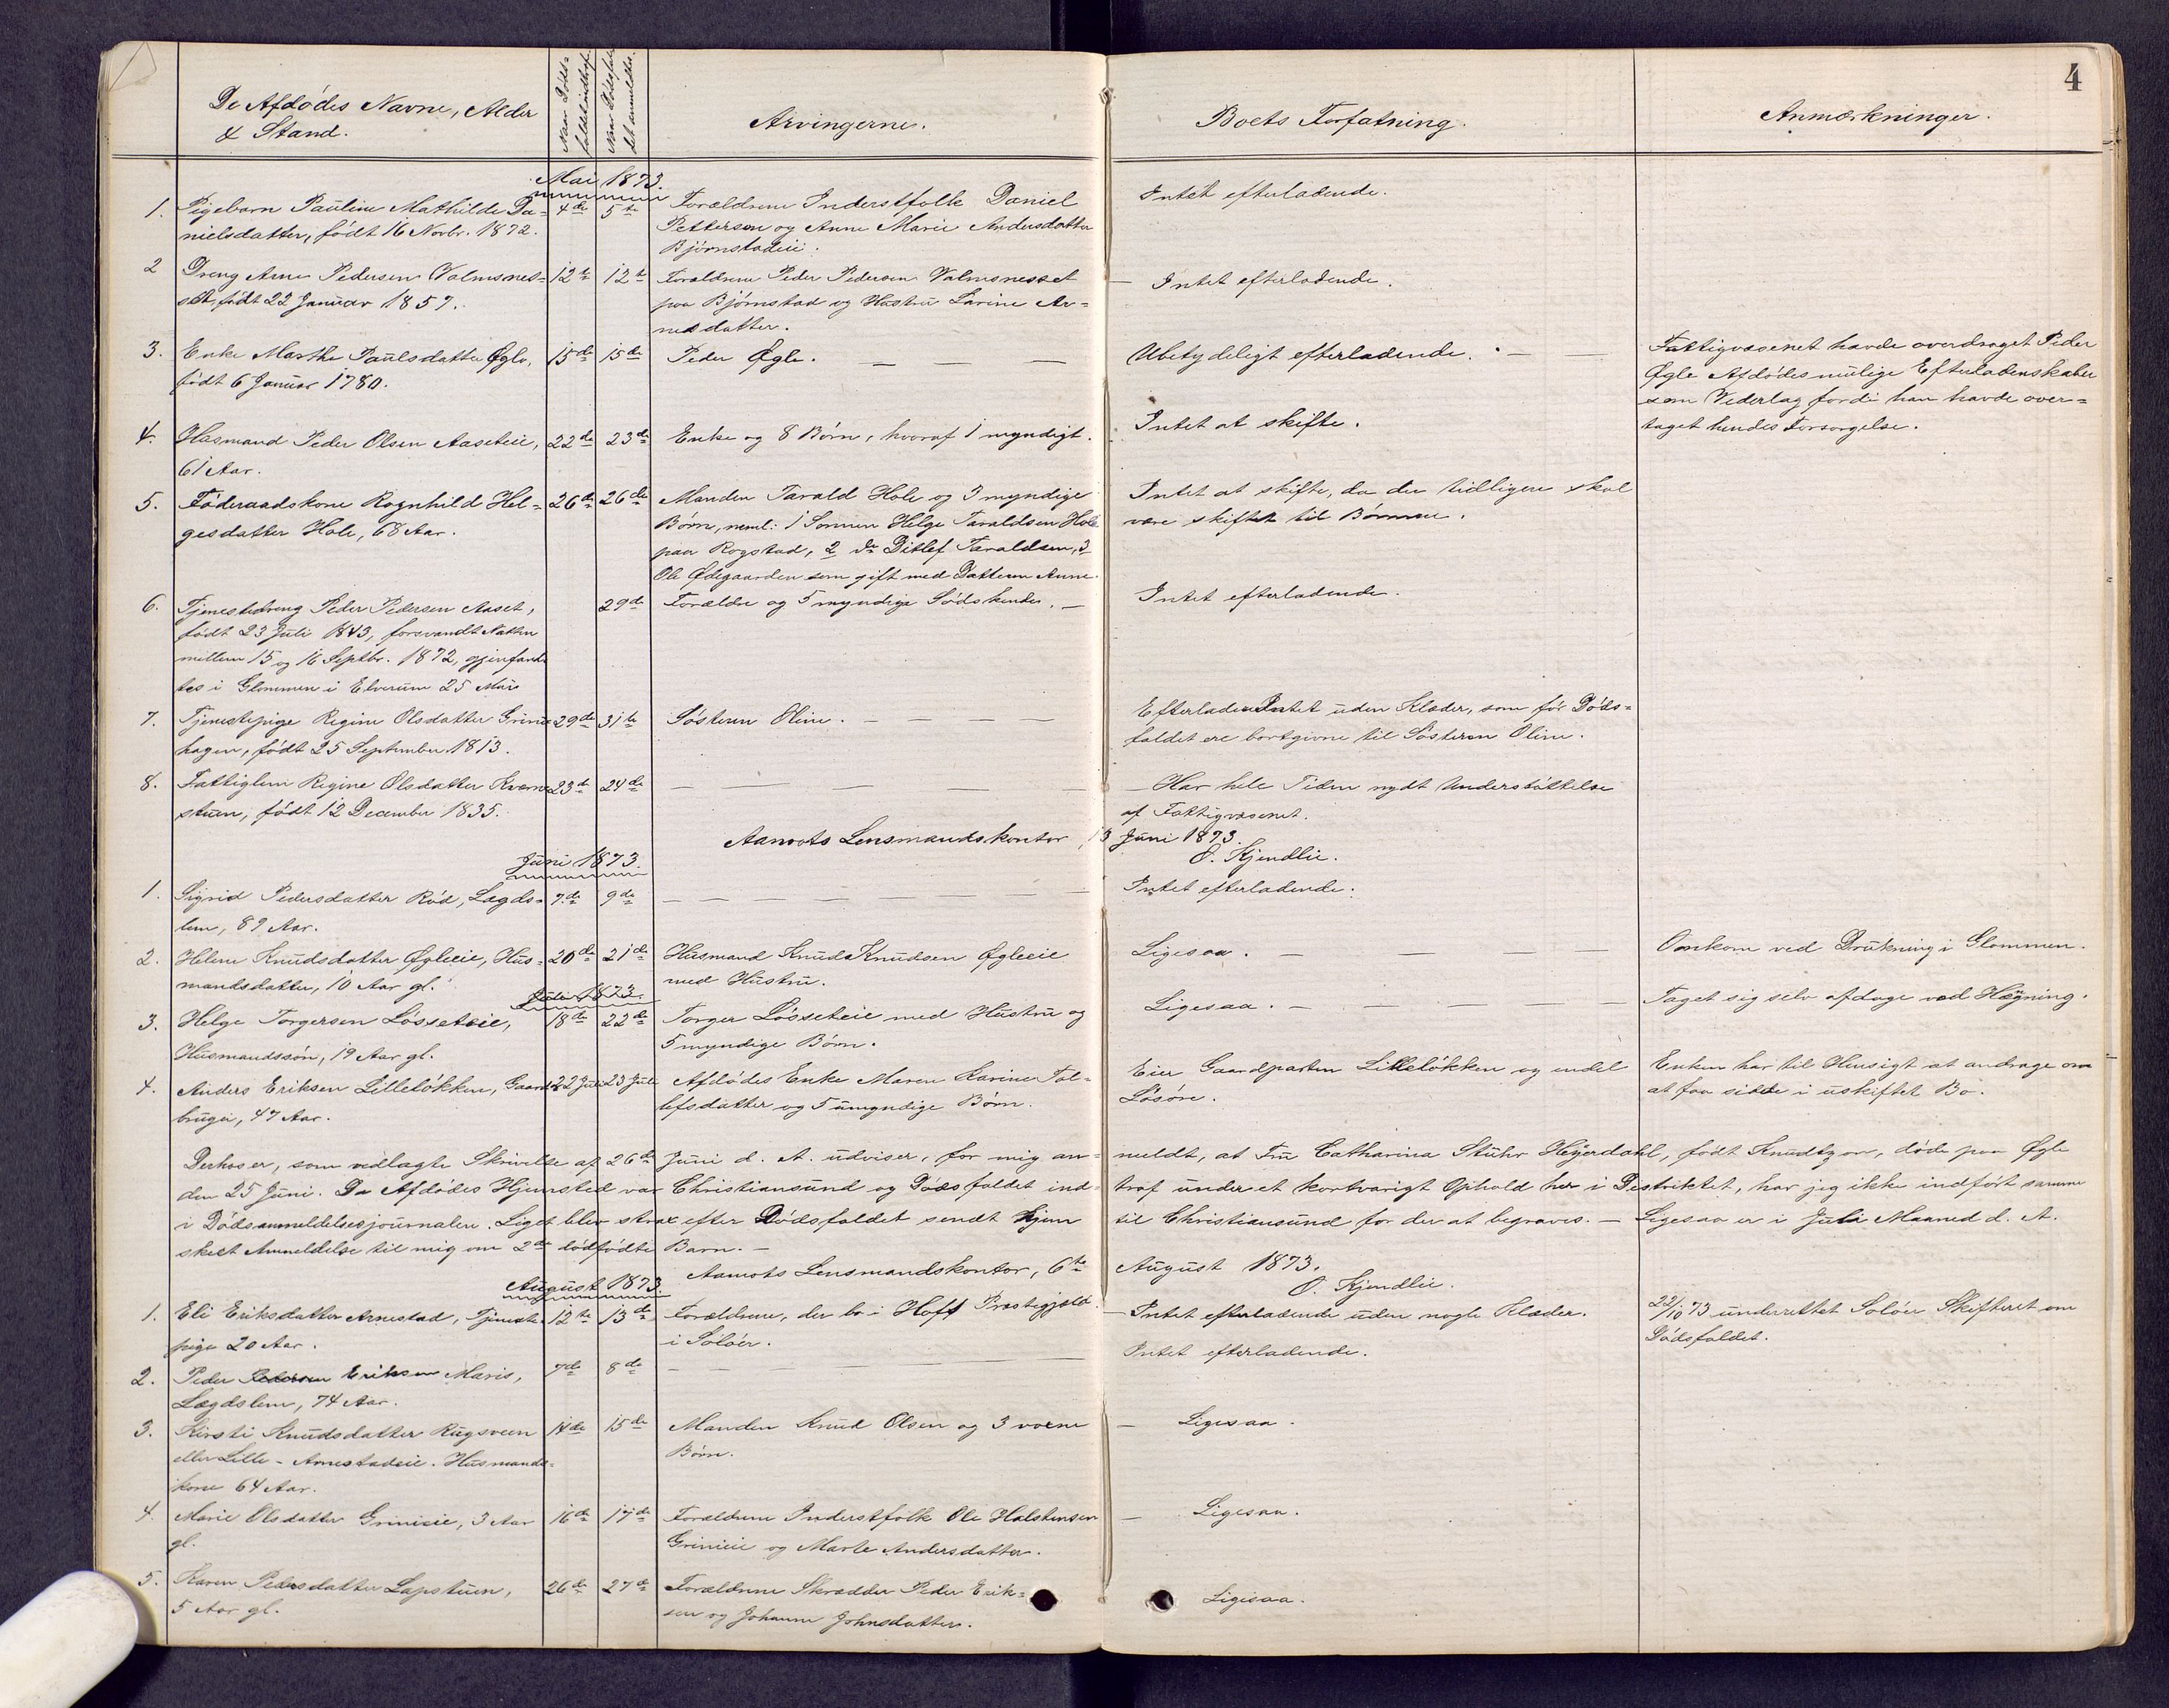 4
De Afdødes Navne, Alder
& Stand.
Naar Döds-
faldet indtraf.
Naar Dödsfal-
det anmeldtes.
Arvingerne.
Boets Forfatning.
Anmærkninger.
Mai 1873.
1. Pigebarn Pauline Mathilde Da- 4de 5te Forældrene Inderstfolk Daniel Intet efterladende.
nielsdatter, født 16 Novbr. 1872. Pettersen og Anne Marie Andersdatter
Bjørnstadeie.
2 Dreng Arne Pedersen Valmsnes- 12te 12te Forældrene Peder Pedersen Valmsnesset — Intet efterladende.
set, født 22 Januar 1857. paa Bjørnstad og Hustru Karine Ar-
nesdatter.
3. Enke Marthe Paulsdatter Øgle, 15de 15de Peder Øgle. — — Ubetydeligt efterladende. — — Fattigvæsenet havde overdraget Peder
født 6 Januar 1780. Øgle Afdødes mulige Efterladenskaber
som Vederlag fordi han havde over-
taget hendes Forsørgelse.
4. Husmand Peder Olsen Aaseteie, 22de 23de Enke og 8 Børn, hvoraf 1 myndigt. Intet at skifte.
61 Aar.
5. Föderaadskone Ragnhild Hel- 26de 26de Manden Tarald Hole og 3 myndige Intet at skifte, da der tidligere skal
gesdatter Hole, 68 Aar. Børn, neml: 1 Sønnen Helge Taraldsen Hole være skiftet til Børnene.
paa Rogstad, 2 do Ditlef Taraldsen, 3
Ole Ødegaarden som gift med Datteren Anne.
6. Tjenestedreng Peder Pedersen Aaset, 29de Forældre og 5 myndige Södskende. — Intet efterladende.
født 23 Juli 1843, forsvandt Natten
mellem 15 og 16 Septbr. 1872, gjenfand-
tes i Glommen i Elverum 25 Mai
7. Tjenestepige Regine Olsdatter Grinds- 29de 31te Söstren Oline. — — — Efterlader Intet uden Klæder, som för Döds-
hagen, født 25 September 1813. faldet ere bortgivne til Søsteren Oline.
8. Fattiglem Regine Olsdatter Kværn- 23de 24de — — — — — Har hele Tiden nydt Understöttelse
stuen, født 12 December 1835. af Fattigvæsenet.
Aamots Lensmandskontor, 13 Juni 1873.
O. Kjendlie.
Juni 1873.
1. Sigrid Pedersdatter Röd, Lægds- 7de 9de — — — — — Intet efterladende.
lem, 89 Aar.
2. Helene Knudsdatter Øgleeie, Hus- 20de 21de Husmand Knud Knudsen Øgleeie Ligesaa. — — — — Omkom ved Drukning i Glommen.
mandsdatter, 10 Aar gl. med Hustru.
Juli 1873.
3. Helge Torgersen Lösseteie, 18de 22de Torger Lösseteie med Hustru og Ligesaa. — — — — Taget sig selv afdage ved Hængning.
Husmandssön, 19 Aar gl. 5 myndige Børn.
4. Anders Eriksen Lilleløkken, Gaard- 22 Juli 23 Juli Afdødes Enke Maren Karine Tol- Eier Gaardparten Lilleløkken og endel Enken har til Hensigt at andrage om
bruger, 47 Aar. lefsdatter og 5 umyndige Børn. Løsøre. at faa sidde i uskiftet Bo.
Derhos er, som vedlagte Skrivelse af 26de Juni d. A. udviser, for mig an- meldt, at Fru Catharina Stuhr Heyerdahl, født Knudtzon, døde paa Øgle
den 25 Juni. Da Afdødes Hjemsted var Christiansund og Dødsfaldet ind- traf under et kortvarigt Ophold her i Destriktet, har jeg ikke indført samme
i Dødsanmeldelsesjournalen. Liget blev strax efter Dødsfaldet sendt Hjem til Christiansund for der at begraves. — Ligesaa er i Juli Maaned d. A.
skeet Anmeldelse til mig om 2de dødfødte Barn. —
Aamots Lensmandskontor, 6te August 1873.
O. Kjendlie.
August 1873.
1. Eli Eriksdatter Arnestad, Tjeneste- 12te 13de Forældrene, der bo i Hoff Præstegjeld — Intet efterladende uden nogle Klæder. 22/10 73 underrettet Soløer Skifteret om
pige 20 Aar. i Soløer. Dødsfaldet.
2. Peder Pedersen Eriksen Maris, 7de 8de — — — — Intet efterladende.
Lægdslem, 74 Aar.
3. Kirsti Knudsdatter Rugsveen 14de 15de Manden Knud Olsen og 3 voxne — Ligesaa.
eller Lille-Arnestadeie. Husmands- Børn.
kone 64 Aar.
4. Marie Olsdatter Grinieie, 3 Aar 16de 17de Forældrene Inderstfolk Ole Halstensen — Ligesaa.
gl. Grinieie og Marte Andersdatter.
5. Karen Pedersdatter Lapstuen, 26de 27de Forældrene Skrædder Peder Erik- Ligesaa.
5 Aar gl. sen og Johanne Johnsdatter.